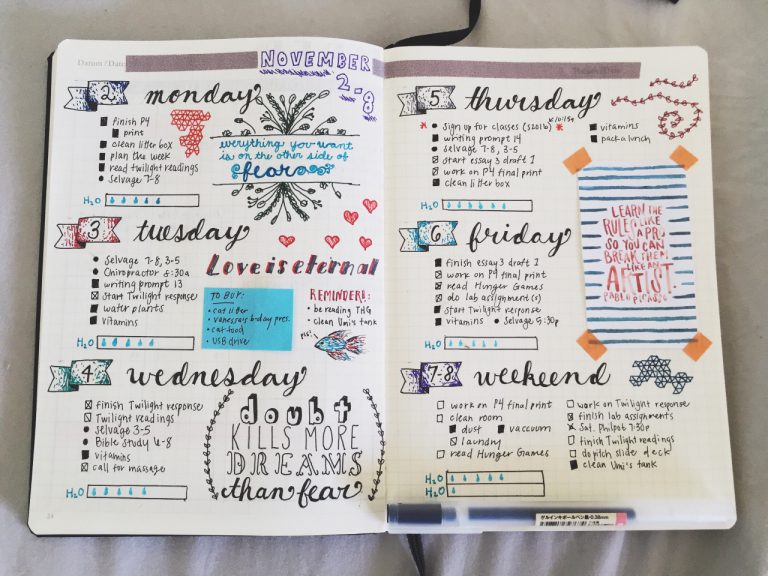 Datum / Date:
NOVEMBER
2-8
2 monday
finish P4
print
clean litter box
plan the week
read twilight readings
selvage 7-8
H2O
everything you want
is on the other side of
fear
3 tuesday
Selvage 7-8, 3-5
Chiropractor 8:30a
writing prompt 13
Start Twilight response
water plants
vitamins
H2O
Love is eternal
TO BUY:
cat litter
vanessa's b-day pres.
cat food
USB driver
REMINDERS:
be reading THG
clean Umi's tank
4 wednesday
finish Twilight response
Twilight readings
Selvage 3-5
Bible Study 6-8
vitamins
call for massage
H2O
doubt
KILLS MORE
DREAMS
than fear
24
5 thursday
sign up for classes (S2016) @ 10:15a
writing prompt 14
selvage 7-8, 3-5
start essay 3 draft 1
work on P4 final print
clean litter box
vitamins
pack lunch
H2O
LEARN THE
RULES LIKE
A PRO
SO YOU CAN
BREAK THEM
LIKE AN
ARTIST.
PABLO PICASSO
6 friday
finish essay 3 draft 1
work on P4 final print
read Hunger Games
do lab assignment(s)
start Twilight response
vitamins
Selvage 5:30p
H2O
7-8 weekend
work on P4 final print
clean room
dust
vaccuum
laundry
read Hunger Games
work on Twilight response
finish lab assignments
Sat. Philpot 7:30p
finish Twilight readings
do pitch slide deck
clean Umi's tank
H2O
H2O
ゲルインキボールペン黒・0.38mm